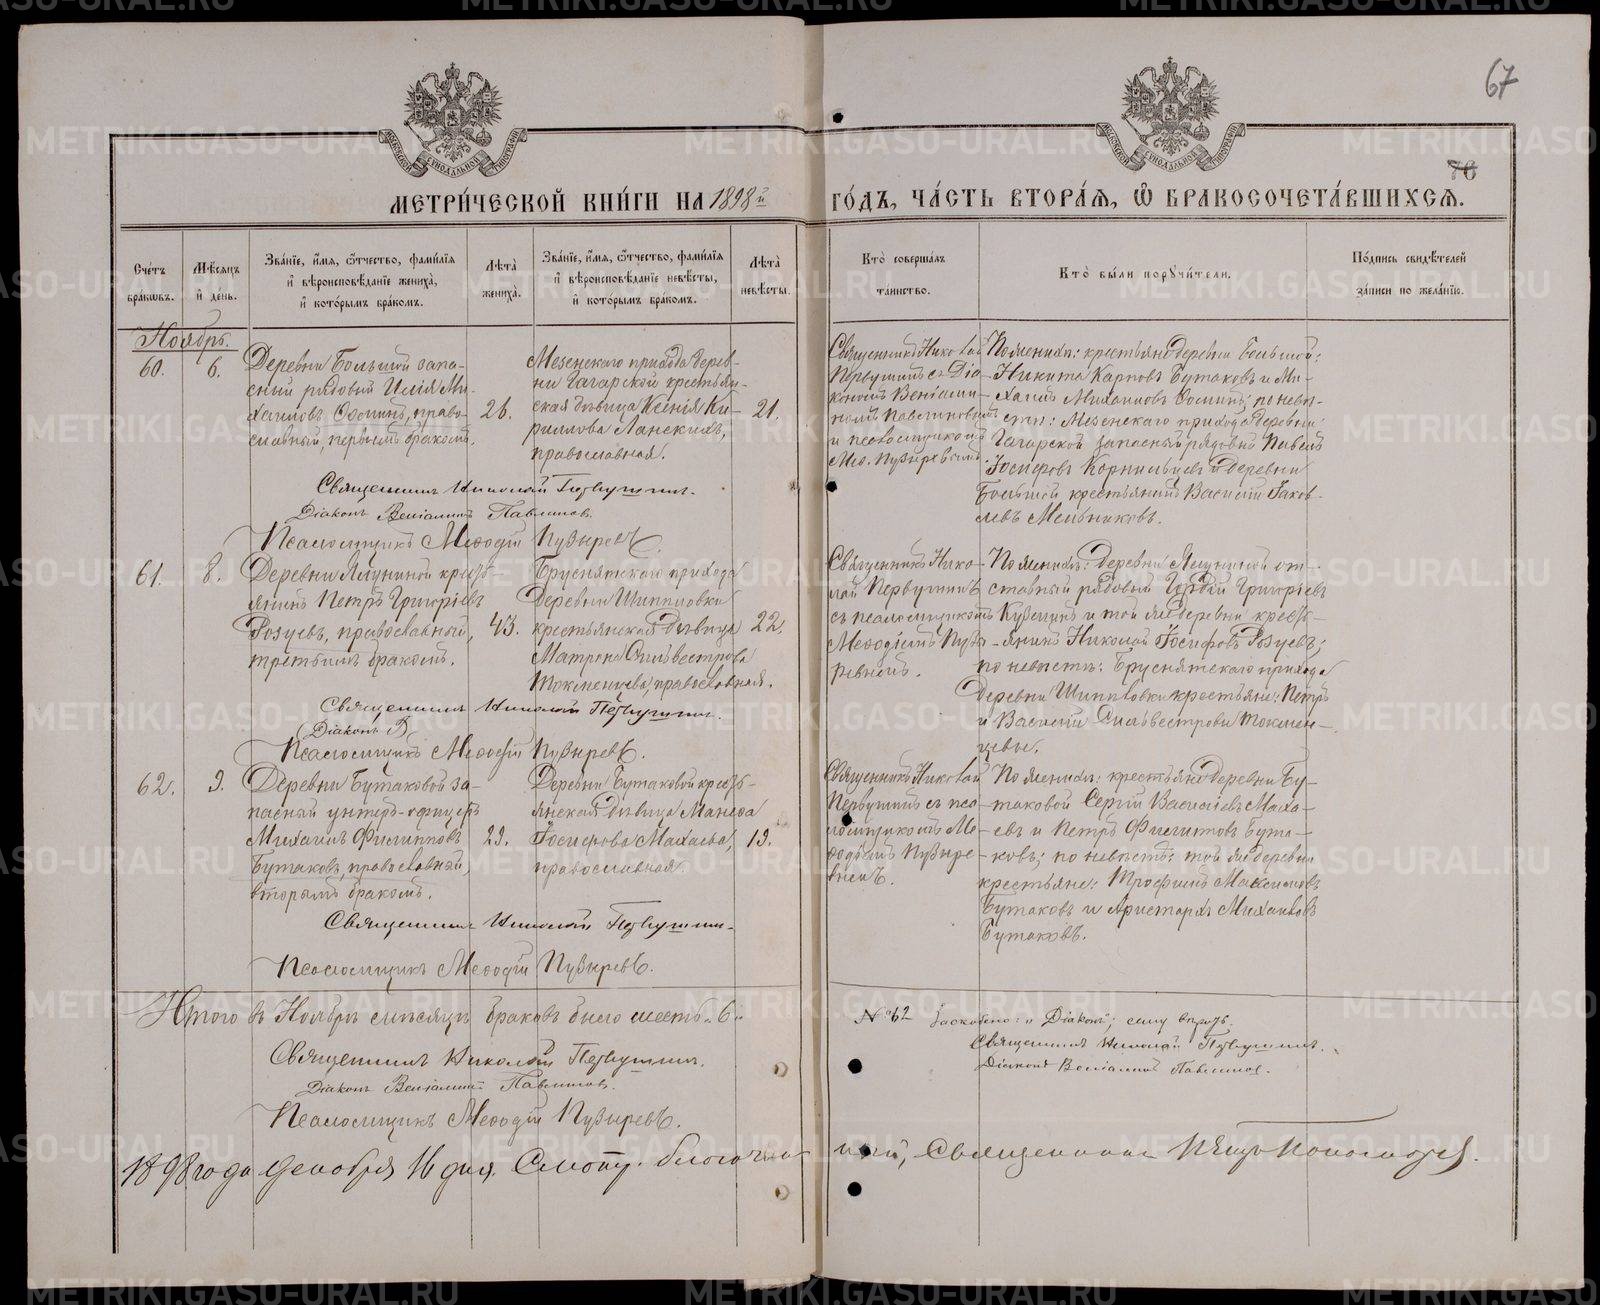 67
70
МЕТРИ́ЧЕСКОЙ КНИ́ГИ НА 1898й ГО́ДЪ, ЧА́СТЬ ВТОРА́Я, Ѿ БРАКОСОЧЕТА́ВШИХСЯ.
Сче́тъ бра́кωвъ.
Мѣ́сяцъ и҆ де́нь.
Зва́нїе, и҆́мя, ѻ҆́тчество, фамі́лїя и҆ вѣроисповѣ́данїе жениха̀, и҆ кото́рымъ бра́комъ.
Лѣ́та жениха̀.
Зва́нїе, и҆́мя, ѻ҆́тчество, фамі́лїя и҆ вѣроисповѣ́данїе невѣ́сты, и҆ кото́рымъ бра́комъ.
Лѣ́та невѣ́сты.
Кто̀ соверша́лъ та́инство.
Кто̀ бы́ли порꙋчи́тели.
По́дпись свидѣ́телей за́писи по жела́нїю.
Ноябрь.
60.
6.
Деревни Большой запа-
сный рядовой Илія Ми-
хаиловъ Ѳоминъ, право-
славный, первымъ бракомъ.
26.
Мезенскаго прихода дерев-
ни Гагарской крестьян-
ская дѣвица Ксенія Ки-
риллова Ланскихъ,
православная.
21.
Священникъ Николай
Первушинъ съ Діа-
кономъ Веніами-
номъ Павлиновымъ
и псаломщикомъ
Меѳ. Пузыревымъ
По женихѣ: крестьяне деревни Большой:
Никита Карповъ Бутаковъ и Ми-
хаилъ Михаиловъ Ѳоминъ; по невѣ-
стѣ: Мезенскаго прихода деревни
Гагарской запасный рядовой Павелъ
Іосифовъ Корнильцевъ и деревни
Большой крестьянинъ Василій Іаков-
левъ Мельниковъ.
Священникъ Николай Первушинъ.
Діаконъ Веніаминъ Павлиновъ.
Псаломщикъ Меѳодій Пузыревъ.
61.
8.
Деревни Ялуниной кресть-
янинъ Петръ Григоріевъ
Розуевъ, православный,
третьимъ бракомъ.
43.
Бруснятскаго прихода
деревни Шипиловки
крестьянская дѣвица
Матрона Сильвестрова
Токменцева, православная.
22.
Священникъ Нико-
лай Первушинъ
съ псаломщикомъ
Меѳодіемъ Пузы-
ревымъ.
По женихѣ: деревни Ялуниной от-
ставный рядовой Гордѣй Григоріевъ
Кузминъ и той же деревни кресть-
янинъ Николай Іосифовъ Розуевъ;
по невѣстѣ: Бруснятскаго прихода
деревни Шипиловки крестьяне: Петръ
и Василій Сильвестровы Токмен-
цевы.
Священникъ Николай Первушинъ.
(Діаконъ В)
Псаломщикъ Меѳодій Пузыревъ.
62.
9.
Деревни Бутаковой за-
пасный унтеръ-офицеръ
Михаилъ Филипповъ
Бутаковъ, православный,
вторымъ бракомъ.
29.
Деревни Бутаковой кресть-
янская дѣвица Манеѳа
Іосифова Махаева,
православная.
19.
Священникъ Николай
Первушинъ съ пса-
ломщикомъ Ме-
ѳодіемъ Пузыре-
вымъ.
По женихѣ: крестьяне деревни Бу-
таковой Сергій Васильевъ Маха-
евъ и Петръ Филипповъ Бута-
ковъ; по невѣстѣ: той же деревни
крестьяне: Трофимъ Максимовъ
Бутаковъ и Аристархъ Михаиловъ
Бутаковъ.
Священникъ Николай Первушинъ.
Псаломщикъ Меѳодій Пузыревъ.
Итого въ Ноябрѣ мѣсяцѣ браковъ было шесть „6„
Священникъ Николай Первушинъ.
Діаконъ Веніаминъ Павлиновъ.
Псаломщикъ Меѳодій Пузыревъ.
№ 62 Заскоблено: „Діаконъ; сему вѣрить.
Священникъ Николай Первушинъ.
Діаконъ Веніаминъ Павлиновъ.
1898 года декабря 16 дня. Смотр. благочинный, Священникъ Пономаревъ.